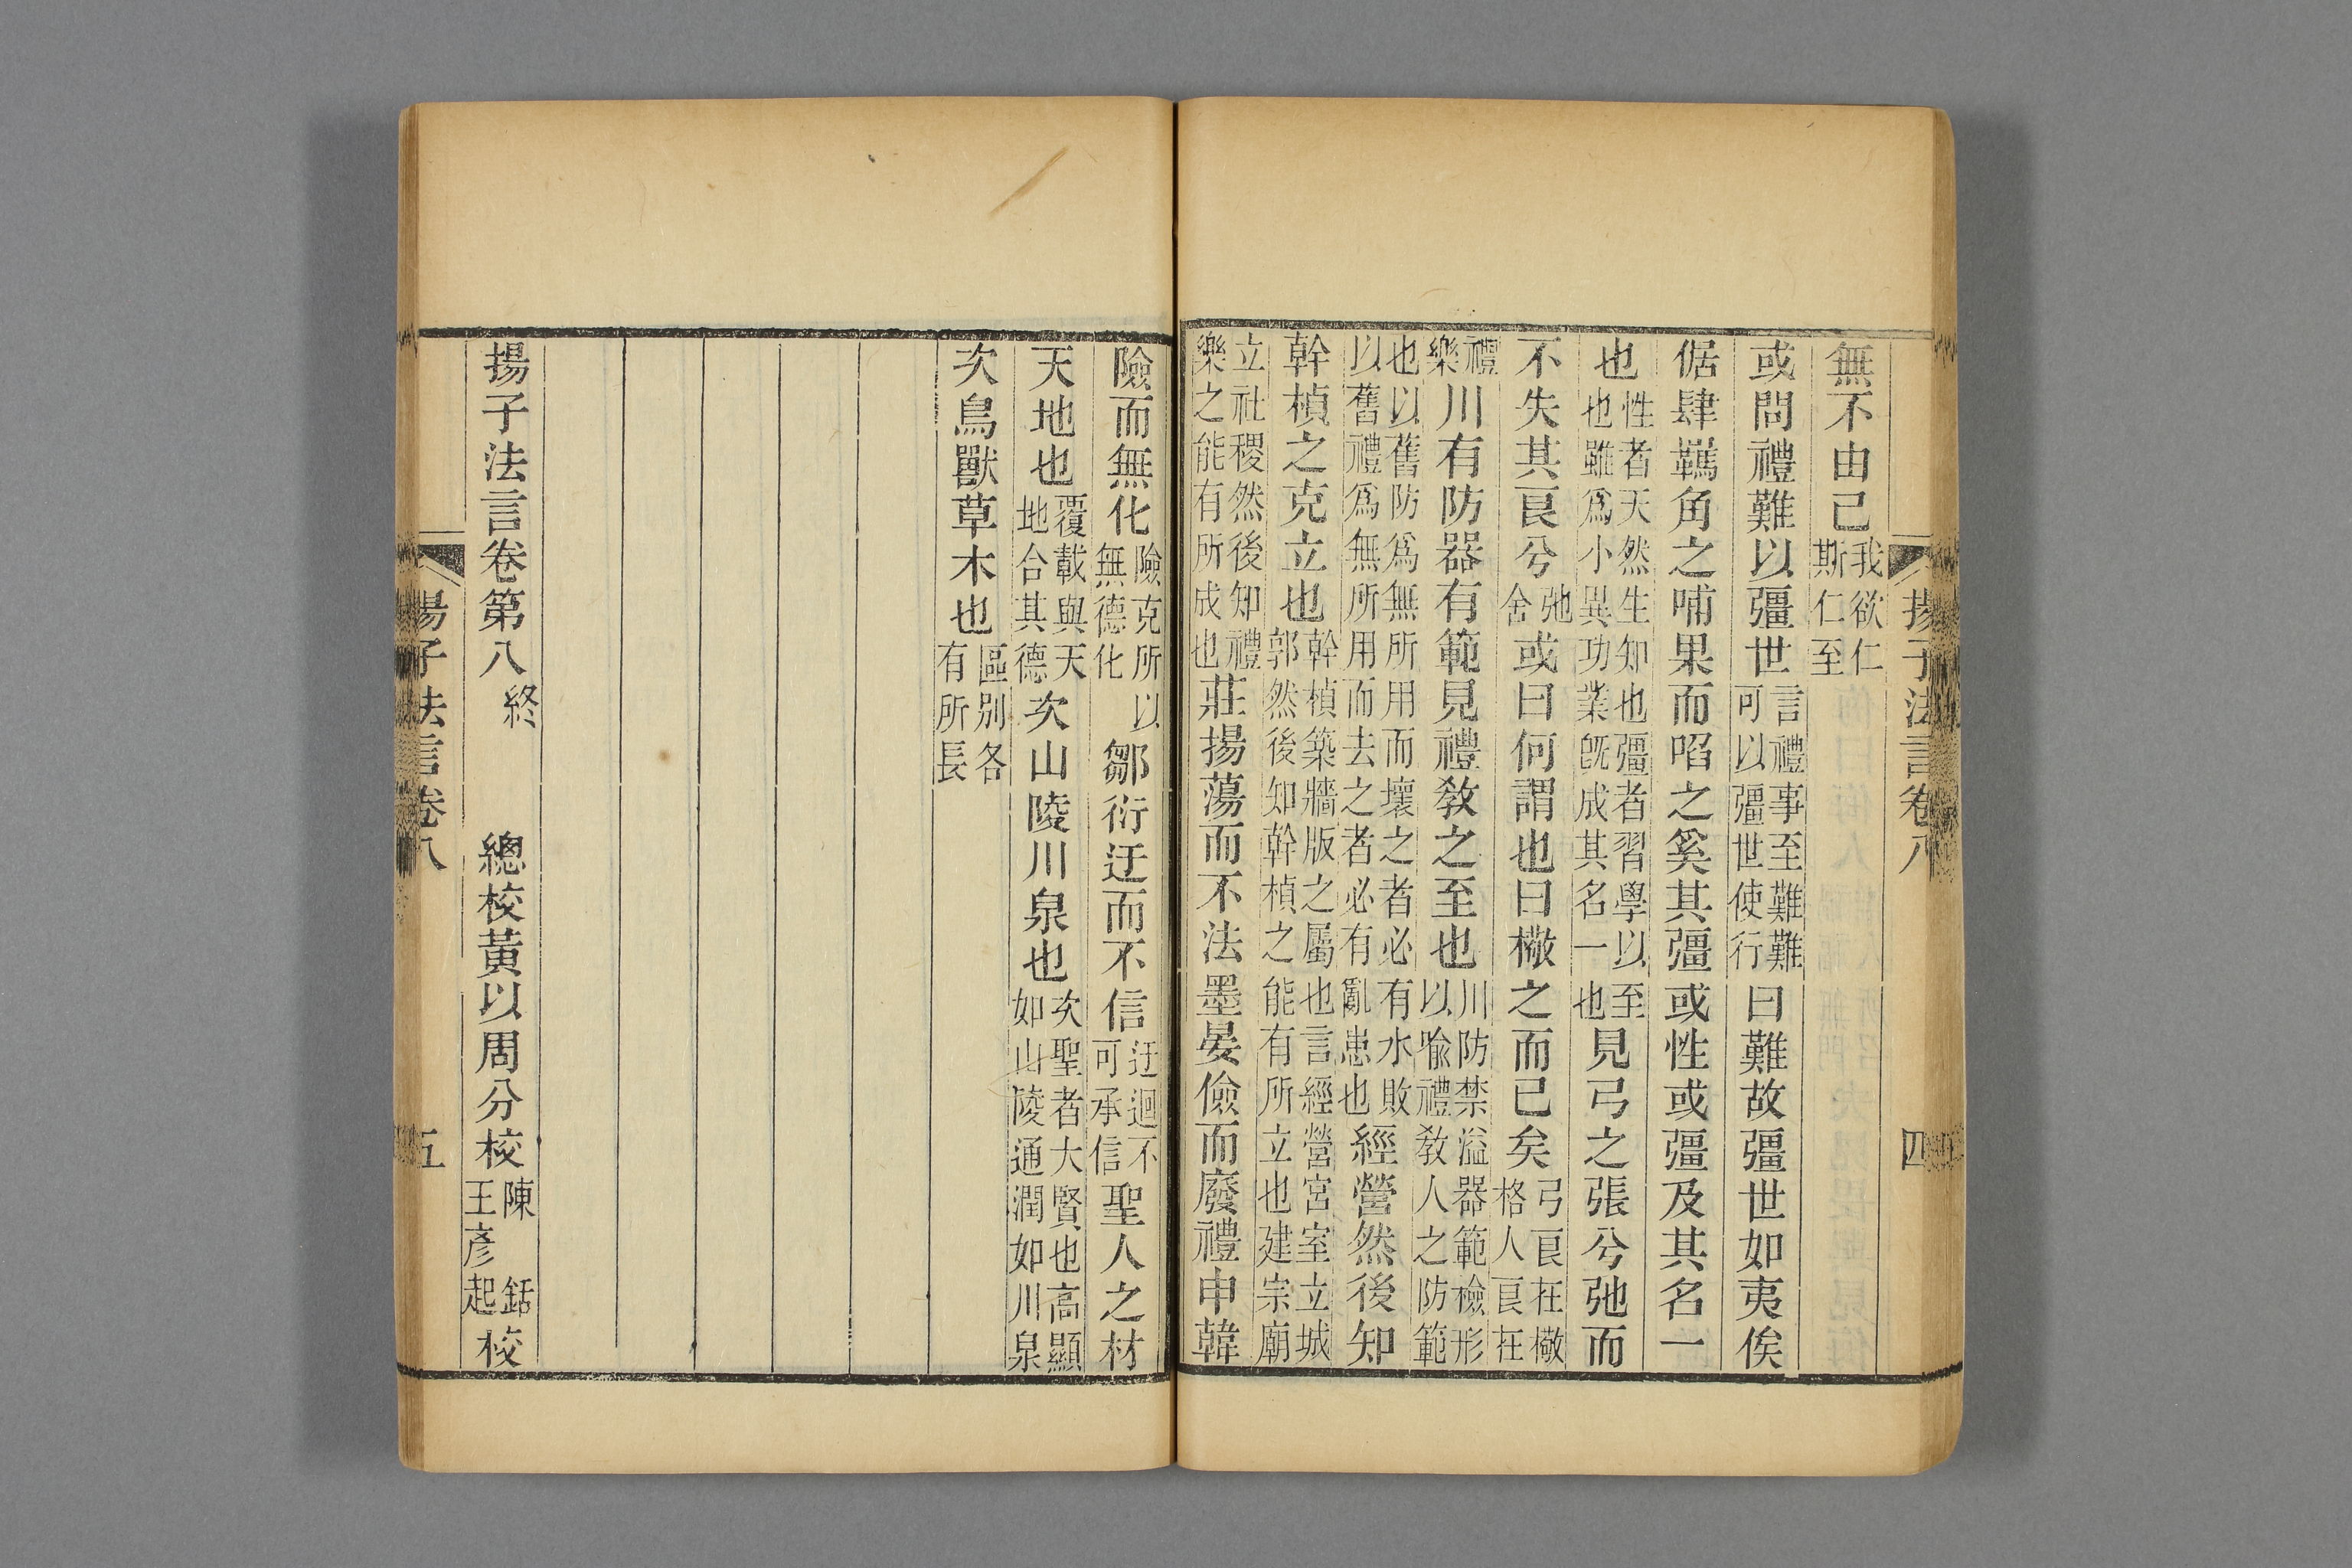 揚子法言卷八 四
無不由已我欲仁斯仁至
或問禮難以彊世言禮事至難難可以彊世使行曰難故彊世如夷俟
倨肆羈角之哺果而啗之奚其彊或性或彊及其名一
也性者天然生知也彊者習學以至也雖爲小異功業旣成其名一也見弓之張兮弛而
不失其良兮弛舍或曰何謂也曰㯳之而已矣弓良在㯳格人良在
禮樂川有防器有範見禮敎之至也川防禁溢器範檢形以喻禮敎人之防範
也以舊防爲無所用而壞之者必有水敗以舊禮爲無所用而去之者必有亂患也經營然後知
幹楨之克立也幹楨築牆版之屬也言經營宮室立城郭然後知幹楨之能有所立也建宗廟
立社稷然後知禮樂之能有所成也莊揚蕩而不法墨晏儉而廢禮申韓
險而無化險克所以無德化鄒衍迂而不信迂迴不可承信聖人之材
天地也覆載與天地合其德次山陵川泉也次聖者大賢也高顯如山陵通潤如川泉
次鳥獸草木也區別各有所長
揚子法言卷第八終 總校黃以周分校陳銛王彥起校
揚子法言卷八 五